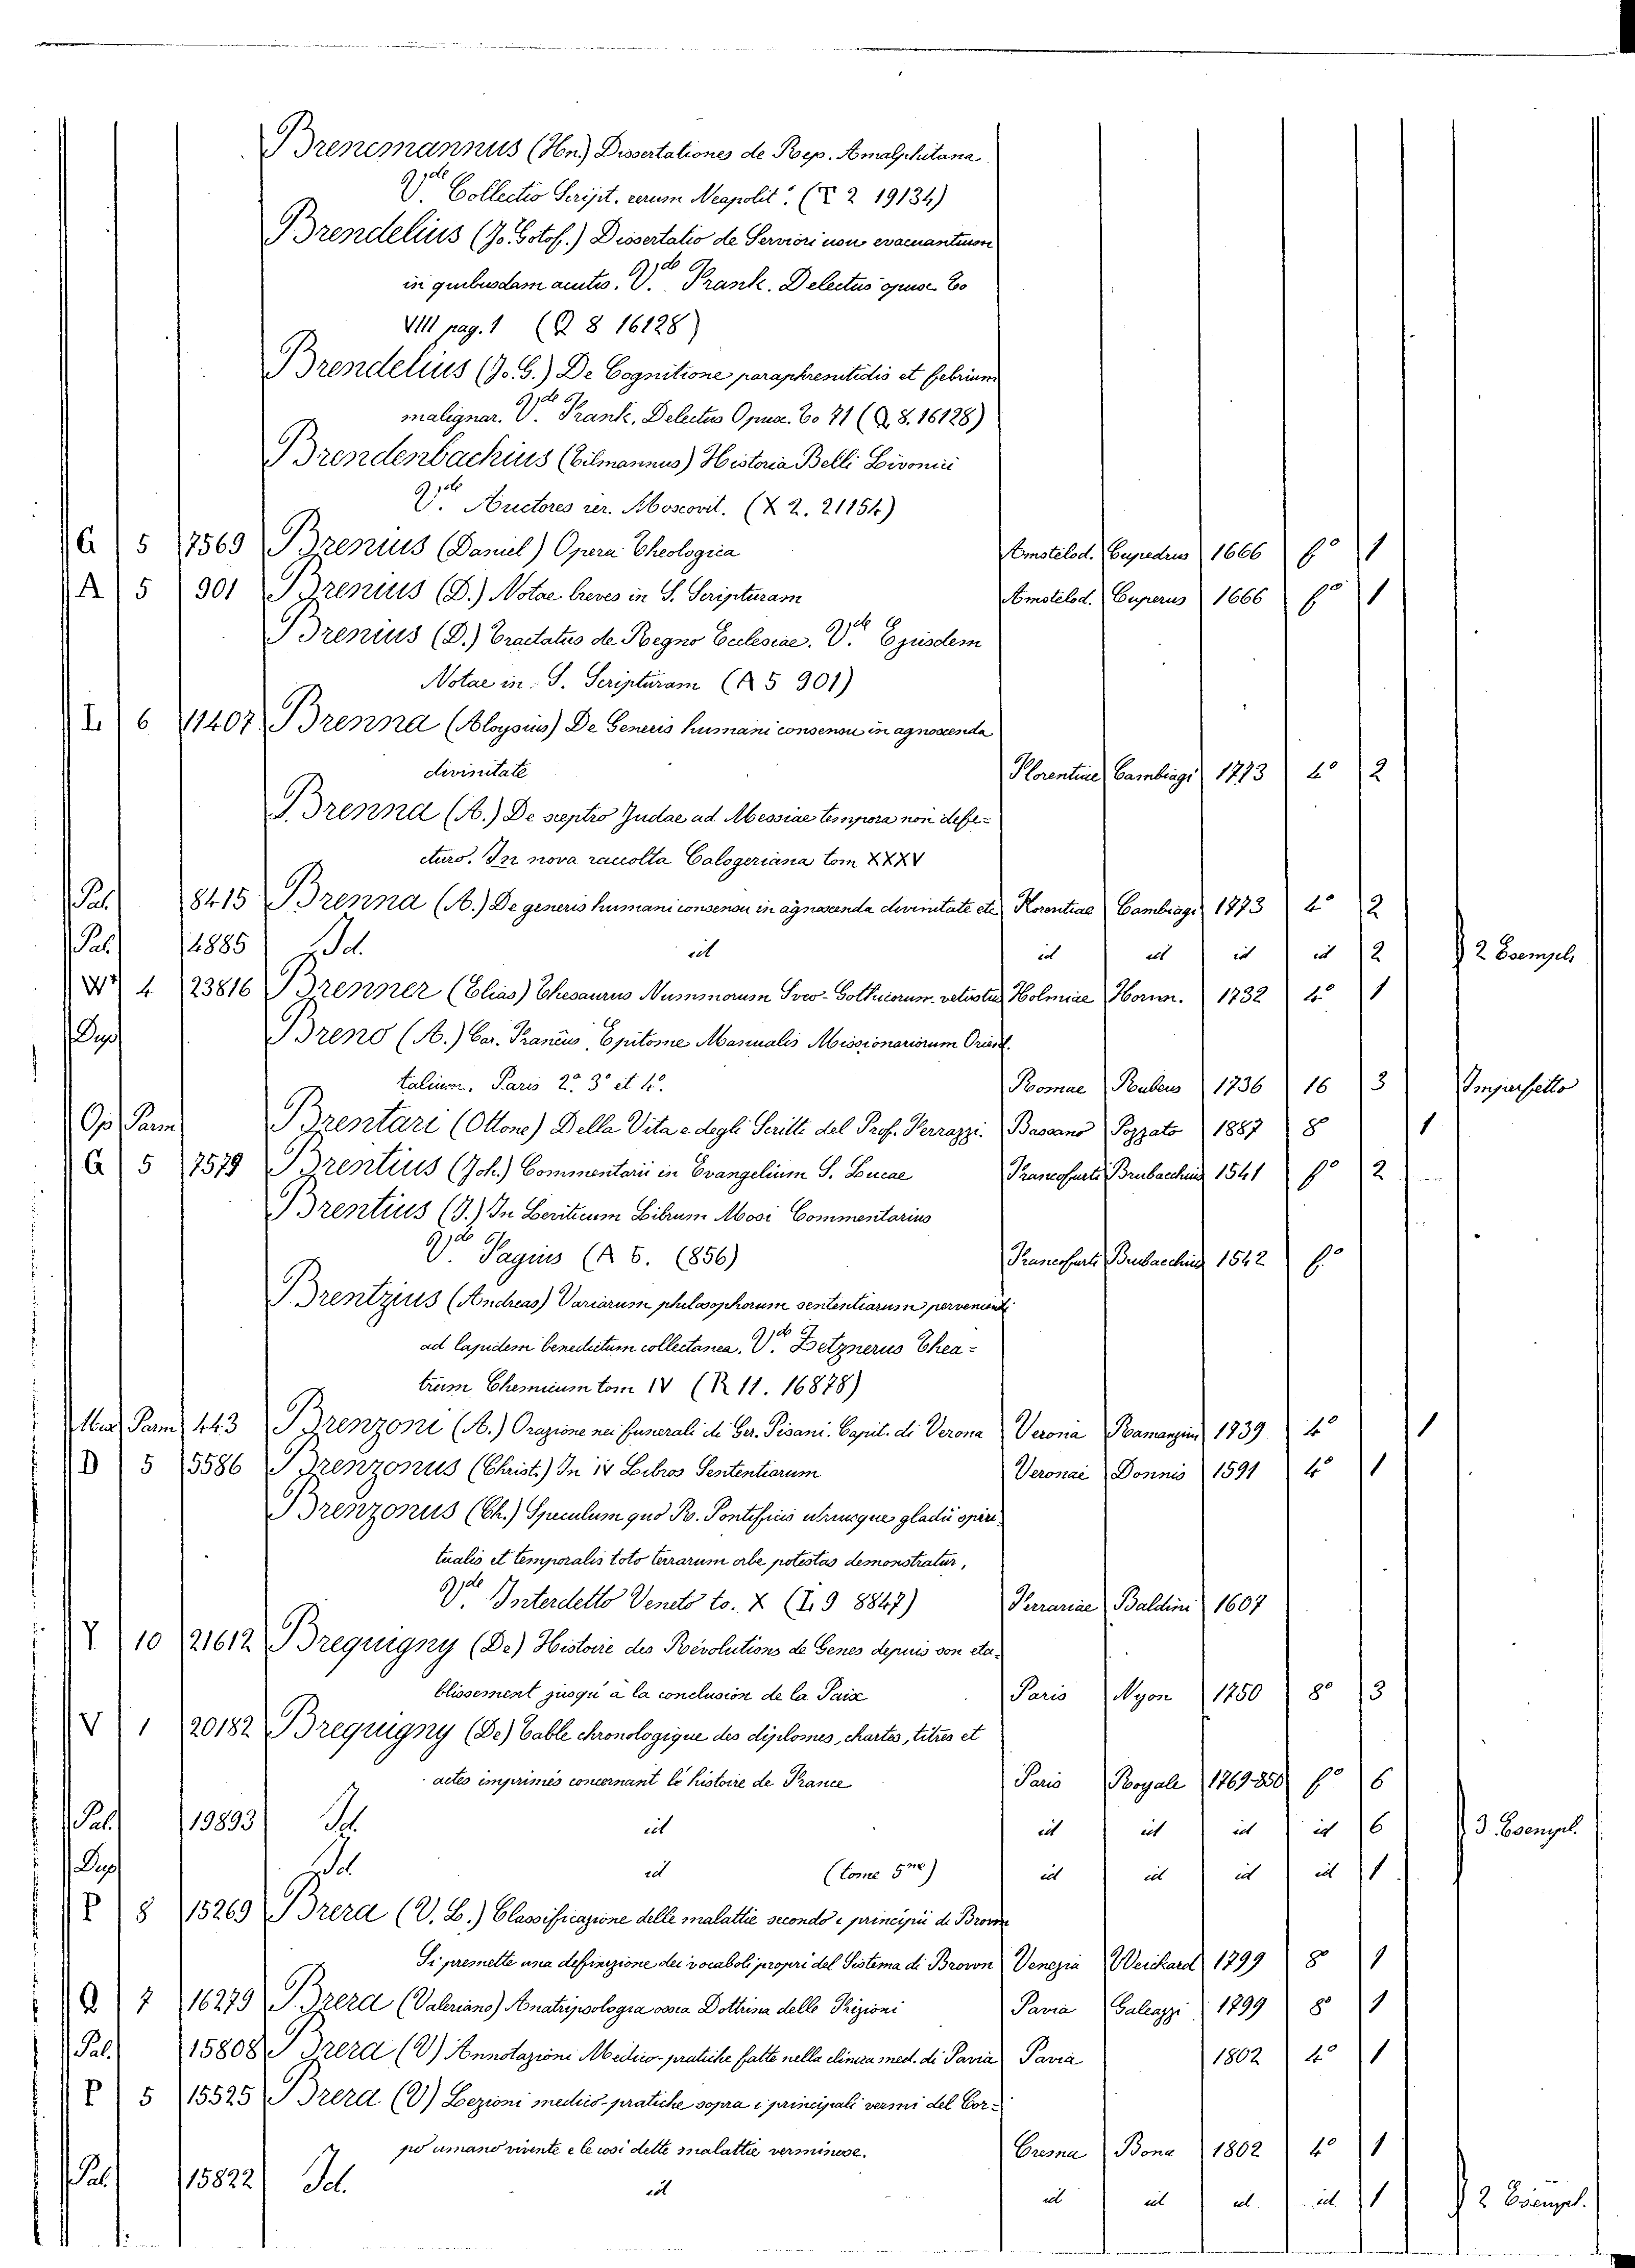 Brencmannus (Hn.) Dissertationes de Rep. Amalphitana
V.de Collectio Script. rerum Neapolit. (T 2 19134)
Brendelius (Jo. Gotof.) Dissertatio de Seriori non evacuantium
in quibusdam acutis. V.de Frank. Delectus opusc. to
VIII pag. 1 (Q 8 16128)
Brendelius (Jo. G.) De Cognitione paraphrenitidis et febrium
malignar. V.de Frank. Delectus Opusc. to 71 (Q. 8. 16128)
Brendenbachius (Tilmannus) Historia Belli Livonici
V.de Auctores rer. Moscovit. (X 2. 21154)
G 5 7569 Brenius (Daniel) Opera Theologica Amstelod. Cupedrus 1666 fo 1
A 5 901 Brenius (D.) Notae breves in S. Scripturam Amstelod. Cuperus 1666 fo 1
Brenius (D.) Tractatus de Regno Ecclesiae. V.de Ejusdem
Notae in S. Scripturam (A 5 901)
I 6 11407 Brenna (Aloysius) De Generis humani consensu in agnoscenda
divinitate Florentiae Cambiagi 1773 4o 2
Brenna (A.) De sceptro Judae ad Messiae tempora non defe-
cturo. In nova raccolta Calogeriana tom XXXV
Pal. 8415 Brenna (A.) De generis humani consensu in agnoscenda divinitate etc. Florentiae Cambiagi 1773 4o 2
Pal. 4885 Id. id id id id id 2 2 Esempl.
W 4 23816 Brenner (Elias) Thesaurus Nummorum Sveo-Gothicorum vetustus Holmiae Horrn. 1732 4o 1
Dup. Breno (A.) Car. Francus, Epitome Manualis Missionariorum Orient.
talium. Paris 2a 3a et 4a. Romae Rubeus 1736 16 3 Imperfetto
Op. Parm Brentari (Ottone) Della Vita e degli Scritti del Prof. Ferrazzi. Bassano Pozzato 1887 8 1
G 5 7579 Brentius (Joh.) Commentarii in Evangelium S. Lucae Francofurti Brubacchius 1541 fo 2
Brentius (J.) In Leviticum Librum Mosi Commentarius
V.de Fagius (A 5. (856) Francofurti Brubacchius 1542 fo
Brentzius (Andreas) Variarum philosophorum sententiarum perveniendi
ad lapidem benedictum collectanea. V.de Zetznerus Thea-
trum Chemicum tom IV (R 11. 16878)
Parm 443 Brenzoni (A.) Orazione nei funerali di Ger. Pisani. Capit. di Verona Verona Ramanzini 1739 4o 1
D 5 5586 Brenzonus (Christ.) In IV Libros Sententiarum Veronae Donnis 1591 4o 1
Brenzonus (Ch.) Speculum quo R. Pontificis utriusque gladii spiri-
tualis et temporalis toto terrarum orbe potestas demonstratur,
V.de Interdetto Veneto to. X (I 9 8847) Ferrariae Baldini 1607
Y 10 21612 Brequigny (De) Histoire des Révolutions de Genes depuis son eta-
blissement jusqu' à la conclusion de la Paix Paris Nyon 1750 8o 3
V 1 20182 Brequigny (De) Table chronologique des diplomes, chartes, titres et
actes imprimés concernant l'histoire de France Paris Royale 1769-850 fo 6
Pal. 19893 Id. id id id id id 6 3 Esempl.
Dup. Id. id (tome 5me) id id id id 1
P 8 15269 Brera (V. L.) Classificazione delle malattie secondo i principii di Brown
Si premette una deffinizione dei vocaboli propri del Sistema di Brown Venezia Weickard 1799 8o 1
Q 7 16279 Brera (Valeriano) Anatripsologia ossia Dottrina delle Frizioni Pavia Galeazzi 1799 8o 1
Pal. 15808 Brera (V) Annotazioni Medico-pratiche fatte nella clinica med. di Pavia Pavia 1802 4o 1
P 5 15525 Brera (V) Lezioni medico-pratiche sopra i principali vermi del Cor-
po umano vivente e le così dette malattie verminose. Crema Bona 1802 4o 1
Pal. 15822 Id. id id id id id 1 2 Esempl.